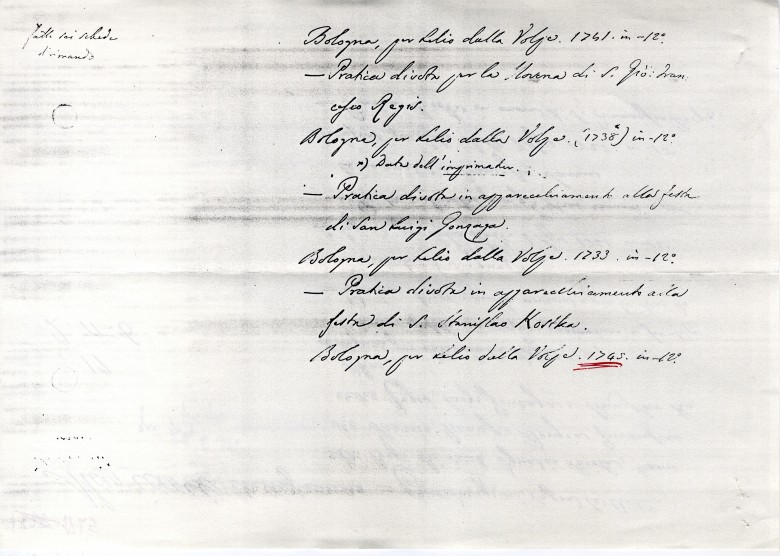 Fatte sei schede
di rimando
Bologna, per Lelio dalla Volpe. 1741. in-12°
— Pratica divota per la Novena di S. Giò: Fran:
cesco Regis.
Bologna, per Lelio dalla Volpe. (1738*) in-12°
*) Data dell'imprimatur.
— Pratica divota in apparecchiamento alla festa
di San Luigi Gonzaga.
Bologna, per Lelio dalla Volpe. 1733. in-12°
— Pratica divota in apparecchiamento alla
festa di S. Stanislao Kostka.
Bologna, per Lelio della Volpe. 1745. in-12°